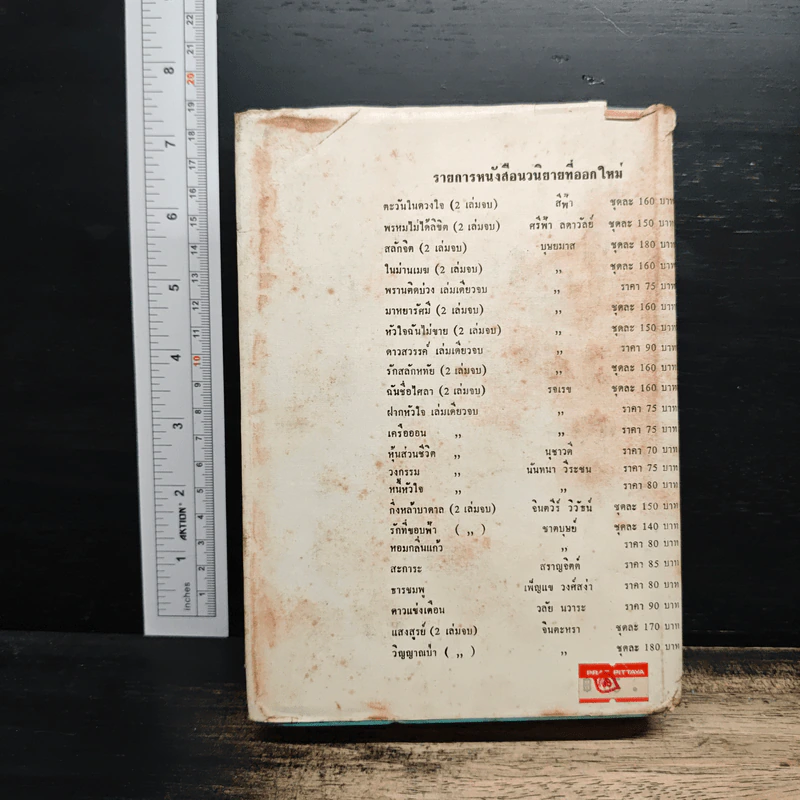 รายการหนังสือนวนิยายที่ออกใหม่
ตะวันในดวงใจ (2 เล่มจบ) สีฟ้า ชุดละ 160 บาท
พรหมไม่ได้ลิขิต (2 เล่มจบ) ศรีฟ้า ลดาวัลย์ ชุดละ 150 บาท
สลักจิต (2 เล่มจบ) บุษยมาส ชุดละ 180 บาท
ในม่านเมฆ (2 เล่มจบ) ,, ชุดละ 160 บาท
พรานติดบ่วง เล่มเดียวจบ ,, ราคา 75 บาท
มาทยารัศมี (2 เล่มจบ) ,, ชุดละ 160 บาท
หัวใจฉันไม่ขาย (2 เล่มจบ) ,, ชุดละ 150 บาท
ดาวสวรรค์ เล่มเดียวจบ ,, ราคา 90 บาท
รักสลักหทัย (2 เล่มจบ) ,, ชุดละ 160 บาท
ฉันชื่อไศลา (2 เล่มจบ) รจเรข ชุดละ 160 บาท
ฝากหัวใจ เล่มเดียวจบ ,, ราคา 75 บาท
เครือออน ,, ,, ราคา 75 บาท
หุ้นส่วนชีวิต ,, นุชาวดี ราคา 70 บาท
วงกรรม ,, นันทนา วีระชน ราคา 75 บาท
หนี้หัวใจ ,, ,, ราคา 80 บาท
กิ่งหล้าบาดาล (2 เล่มจบ) จินตวีร์ วิวัธน์ ชุดละ 150 บาท
รักที่ขอบฟ้า ( ,, ) ชาตบุษย์ ชุดละ 140 บาท
หอมกลิ่นแก้ว ,, ราคา 80 บาท
สะการะ สราญจิตต์ ราคา 85 บาท
ธารชมพู เพ็ญแข วงศ์สง่า ราคา 80 บาท
ดาวแข่งเดือน วลัย นวาระ ราคา 90 บาท
แสงสูรย์ (2 เล่มจบ) จินตะหรา ชุดละ 170 บาท
วิญญาณป่า ( ,, ) ,, ชุดละ 180 บาท
PITTAYA
AKTION
inches
1
2
3
4
5
6
7
8
1
2
3
4
5
6
7
8
9
10
11
12
13
14
15
16
17
18
19
20
21
22